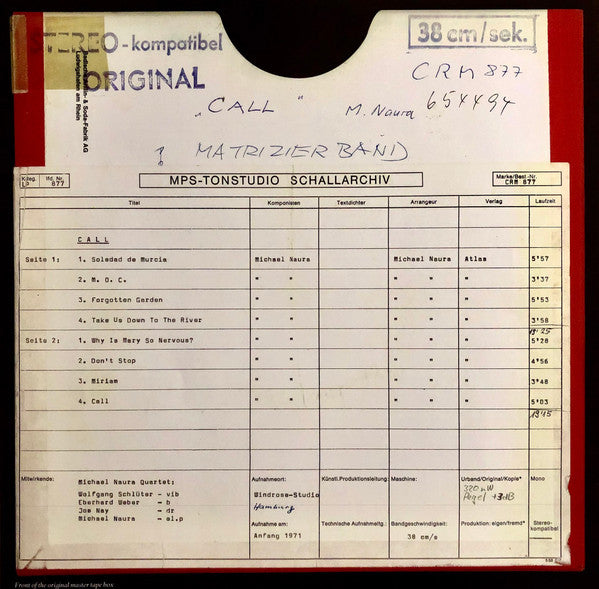 STEREO-kompatibel
38 cm/sek.
ORIGINAL
& Soda-Fabrik AG
Ludwigshafen am Rhein
CRM 877
654494
„CALL" M. Naura
? MATRIZIERBAND
Kateg. lfd. Nr.
LP 877
MPS-TONSTUDIO SCHALLARCHIV
Marke/Best-Nr.
CRM 877
Titel Komponisten Textdichter Arrangeur Verlag Laufzeit
CALL
Seite 1: 1. Soledad de Murcia Michael Naura Michael Naura Atlas 5'57
2. M. O. C. " " " " " 3'37
3. Forgotten Garden " " " " " 5'53
4. Take Us Down To The River " " " " " 3'58
19'25
Seite 2: 1. Why Is Mary So Nervous? " " " " " 5'28
2. Don't Stop " " " " " 4'56
3. Miriam " " " " " 3'48
4. Call " " " " " 5'03
19'15
Mitwirkende: Michael Naura Quartet:
Wolfgang Schlüter - vib
Eberhard Weber - b
Joe Nay - dr
Michael Naura - el.p
Aufnahmeort: Künstl. Produktionsleitung: Maschine: Urband/Original/Kopie* Mono
Windrose-Studio
Hamburg
320 nW
Pegel +3dB
Aufnahme am: Technische Aufnahmeltg. Bandgeschwindigkeit: Produktion: eigen/fremd* Stereo-
kompatibel
Anfang 1971 38 cm/s
Front of the original master tape box